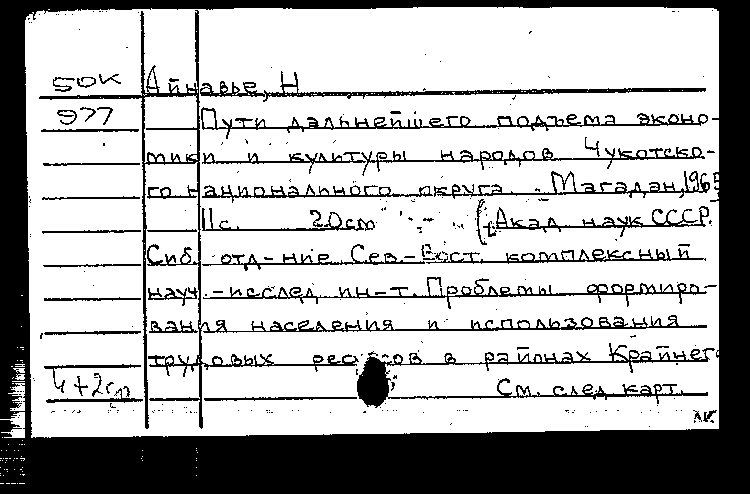 50К Айнавье, Н
977 Пути дальнейшего подъема эконо-
мики и культуры народов Чукотско-
го национального округа. - Магадан, 1965
11с. 20cm (Акад. наук СССР.
Сиб. отд-ние Сев.-Вост. комплексный
науч.-исслед. ин-т. Проблемы формиро-
вания населения и использования
трудовых ресурсов в районах Крайнег
4+2сл См. след карт.
NK